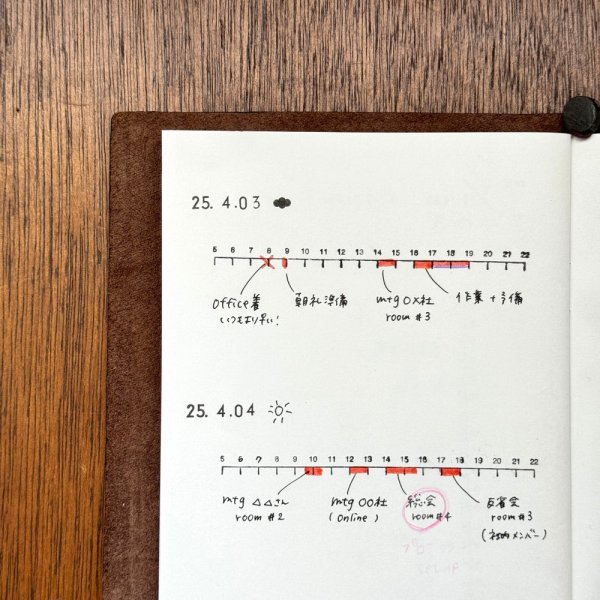 25. 4.03
5 6 7 8 9 10 11 12 13 14 15 16 17 18 19 20 21 22
office着
いつもより早い!
朝礼準備
mtg ○×社
room #3
作業 + 予備
25. 4.04
5 6 7 8 9 10 11 12 13 14 15 16 17 18 19 20 21 22
mtg △△さん
room #2
mtg ○○社
(online)
総会
room #4
反省会
room #3
(社内メンバー)